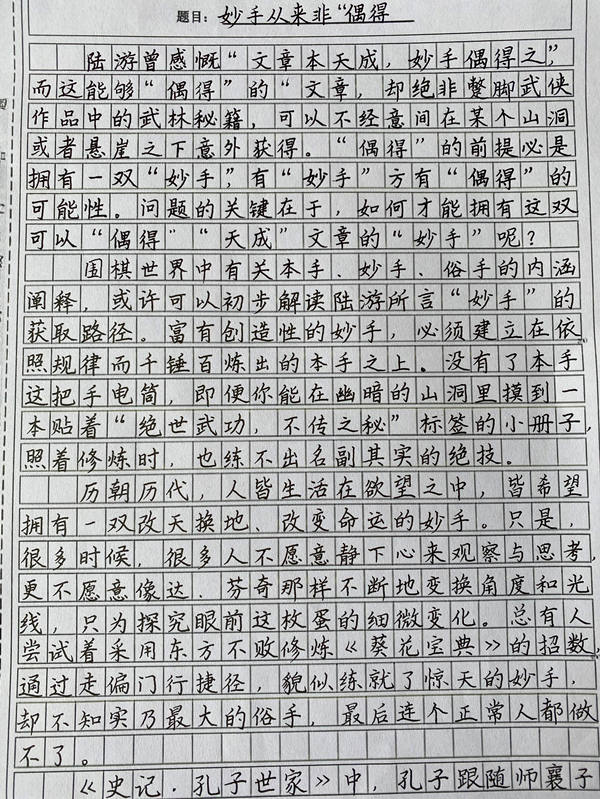 题目：妙手从来非“偶得
陆游曾感慨“文章本天成，妙手偶得之”，
而这能够“偶得”的“文章，却绝非蹩脚武侠
作品中的武林秘籍，可以不经意间在某个山洞
或者悬崖之下意外获得。“偶得”的前提必是
拥有一双“妙手”，有“妙手”方有“偶得”的
可能性。问题的关键在于，如何才能拥有这双
可以“偶得”“天成”文章的“妙手”呢？
围棋世界中有关本手、妙手、俗手的内涵
阐释，或许可以初步解读陆游所言“妙手”的
获取路径。富有创造性的妙手，必须建立在依
照规律而千锤百炼出的本手之上。没有了本手
这把手电筒，即便你能在幽暗的山洞里摸到一
本贴着“绝世武功，不传之秘”标签的小册子，
照着修炼时，也练不出名副其实的绝技。
历朝历代，人皆生活在欲望之中，皆希望
拥有一双改天换地、改变命运的妙手。只是，
很多时候，很多人不愿意静下心来观察与思考，
更不愿意像达·芬奇那样不断地变换角度和光
线，只为探究眼前这枚蛋的细微变化。总有人
尝试着采用东方不败修炼《葵花宝典》的招数，
通过走偏门行捷径，貌似练就了惊天的妙手，
却不知实乃最大的俗手，最后连个正常人都做
不了。
《史记·孔子世家》中，孔子跟随师襄子